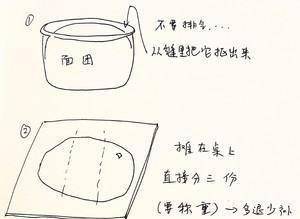 ①
不要排气....
从缝里把它抠出来
面团
②
摊在桌上
直接分三份
(要称重) → 多退少补